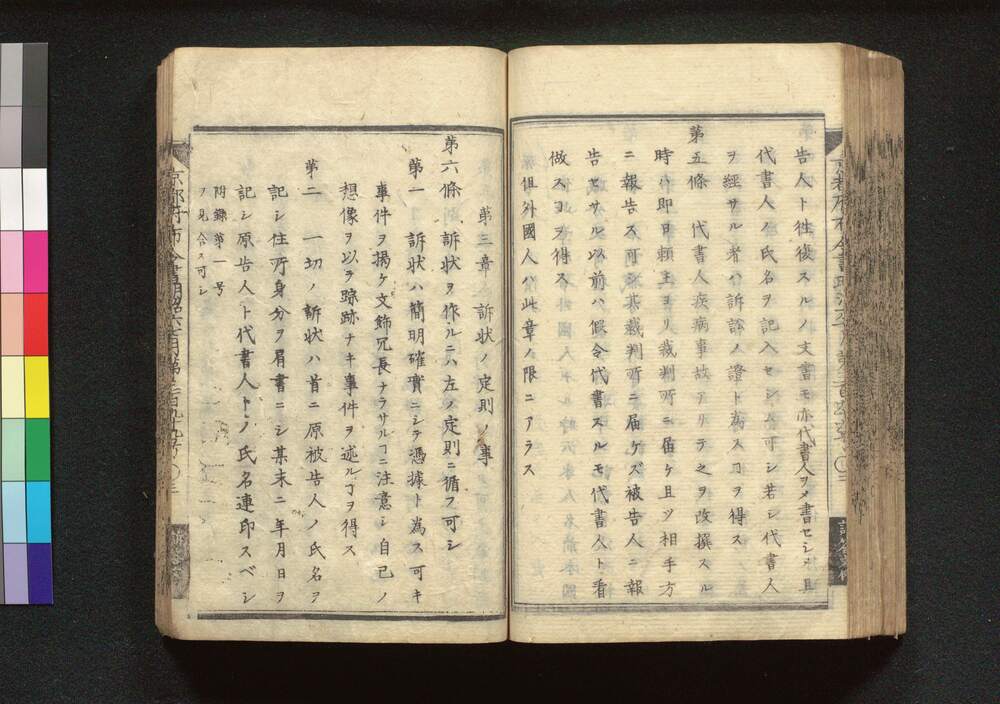 告人ト往復スルノ文書モ亦代書人ヲメ書セシメ且
代書人ノ氏名ヲ記入セシム可シ若シ代書人
ヲ経サル者ハ訴訟ノ證ト為スヿヲ得ス
第五條 代書人疾病事故アリテ之ヲ改撰スル
時ハ即日頼主ヨリ裁判所ニ届ケ且ツ相手方
ニ報告ス可シ若シ裁判所ニ届ケズ被告人ニ報
告セサル以前ハ假令代書スルモ代書人ト看
做スヿヲ得ス
但外國人ハ此章ノ限ニアラス
第三章 訴状ノ定則ノ事
第六條 訴状ヲ作ルニハ左ノ定則ニ循フ可シ
第一 訴状ハ簡明確實ニシテ憑據ト為ス可キ
事件ヲ掲ケ文飾冗長ナラサルヿニ注意シ自己ノ
想像ヲ以テ踪跡ナキ事件ヲ述ルヿヲ得ス
第二 一切ノ訴状ハ首ニ原被告人ノ氏名ヲ
記シ住所身分ヲ肩書ニシ某末ニ年月日ヲ
記シ原告人ト代書人トノ氏名連印スベシ
附録第一号
ヲ見合ス可シ
京都府布令書